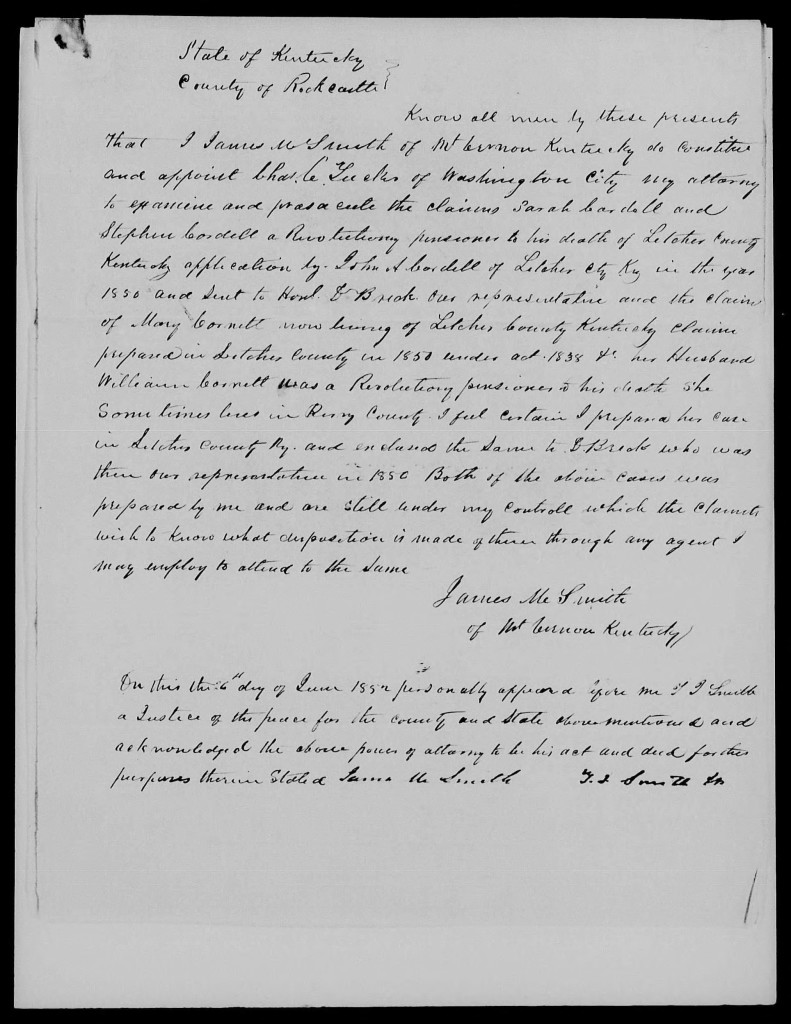 State of Kentucky
County of Rockcastle
Know all men by these presents
That I James M Smith of Mt Vernon Kentucky do Constitute
and appoint Chas. C. Tucker of Washington City my attorny
to examine and prosacute the claims Sarah Cordell and
Stephen Cordell a Revolutionary pensioner to his death of Letcher County
Kentucky application by John A Cordell of Letcher Cty Ky in the year
1850 and Sent to Honl. D Breck our representative and the claim
of Mary Cornett now living of Letcher County Kentucky claim
prepared in Letcher County in 1850 under act 1838 &c her Husband
William Cornett was a Revolutiony pensioner to his death She
Sometimes lives in Perry County. I feel certain I prepared her case
in Letcher County Ky. and enclosed the Same to D Breck who was
then our representative in 1850 Both of the above cases was
prepared by me and are Still under my controll which the claimets
wish to know what disposition is made of them through any agent I
may employ to attend to the Same
James M Smith
of Mt Vernon Kentucky
On this the 6th day of June 1852 personally appeard before me T J Smith
a Justice of the peace for the county and State above mentioned and
acknowledged the above power of attorny to be his act and deed for the
purposes therein Stated James M Smith T. J. Smith